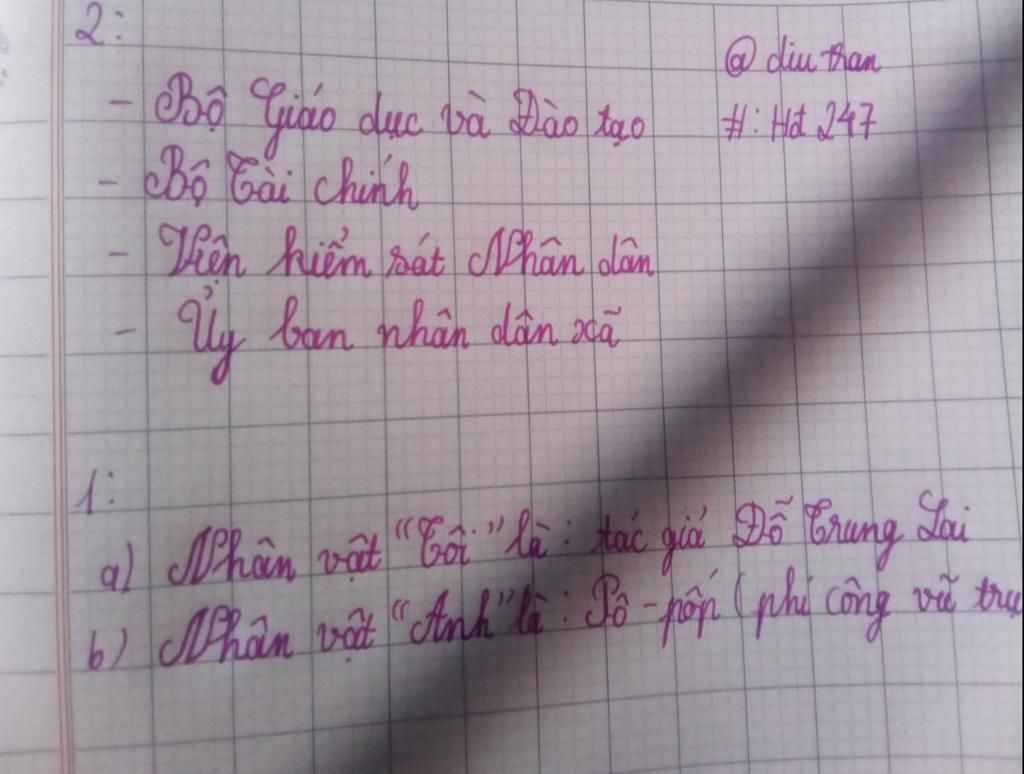 2:
@ diu than
- Bộ Giáo dục và Đào tạo
#: Hd 247
- Bộ Tài chính
- Viện kiểm sát Nhân dân
- Ủy ban nhân dân xã
1:
a) Nhân vật "Tôi" là: tác giả Đỗ Trung Lai
b) Nhân vật "Anh" là: Pô-pốp (phi công vũ trụ